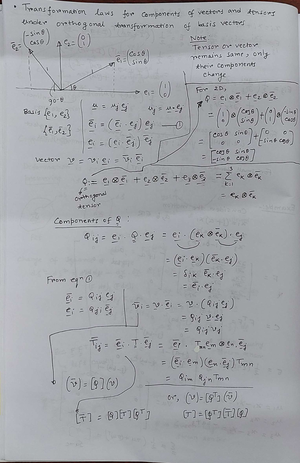 * Transformation laws for components of vectors and tensors
under orthogonal transformation of basis vectors
Note:
Tensor or vector
remains same, only
their components
change
ē₂ = (-sinθ cosθ)
e₂ = (0 1)
ē₁ = (cosθ sinθ)
e₁ = (1 0)
θ
90-θ
Basis {e₁, e₂}
{ē₁, ē₂}
u = uⱼ eⱼ
uⱼ = u·eⱼ
ēᵢ = (ēᵢ · eⱼ) eⱼ — ①
eᵢ = (eᵢ · ēⱼ) ēⱼ
vector v = vᵢ eᵢ = v̄ᵢ ēᵢ
For 2D,
Q = e₁⊗ē₁ + e₂⊗ē₂
= (1 0)⊗(cosθ sinθ) + (0 1)⊗(-sinθ cosθ)
= [cosθ sinθ 0 0] + [0 0 -sinθ cosθ]
= [cosθ sinθ -sinθ cosθ]
Q = e₁⊗ē₁ + e₂⊗ē₂ + e₃⊗ē₃ = Σ³ₖ₌₁ eₖ⊗ēₖ
orthogonal
tensor
= eₖ⊗ēₖ
Components of Q:
Qᵢⱼ = eᵢ · Q eⱼ = eᵢ · (eₖ⊗ēₖ) · eⱼ
= (eᵢ·eₖ)(ēₖ·eⱼ)
= δᵢₖ ēₖ·eⱼ
= ēᵢ·eⱼ
From eqⁿ ①
ēᵢ = Qᵢⱼ eⱼ
eᵢ = Qⱼᵢ ēⱼ
v̄ᵢ = v·ēᵢ = v·(Qᵢⱼ eⱼ)
= Qᵢⱼ v·eⱼ
= Qᵢⱼ vⱼ
T̄ᵢⱼ = ēᵢ · T ēⱼ = ēᵢ · Tₘₙ eₘ⊗eₙ · ēⱼ
= (ēᵢ·eₘ)(eₙ·ēⱼ) Tₘₙ
= Qᵢₘ Qⱼₙ Tₘₙ
(v̄) = [Q](v)
or, (v) = [Qᵀ](v̄)
[T̄] = [Q][T][Qᵀ]
[T] = [Qᵀ][T̄][Q]